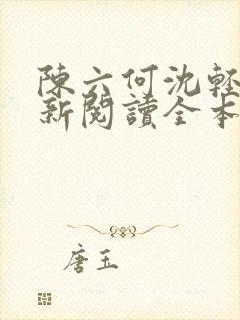 陳六何沈輕
新閱讀全本
唐玉